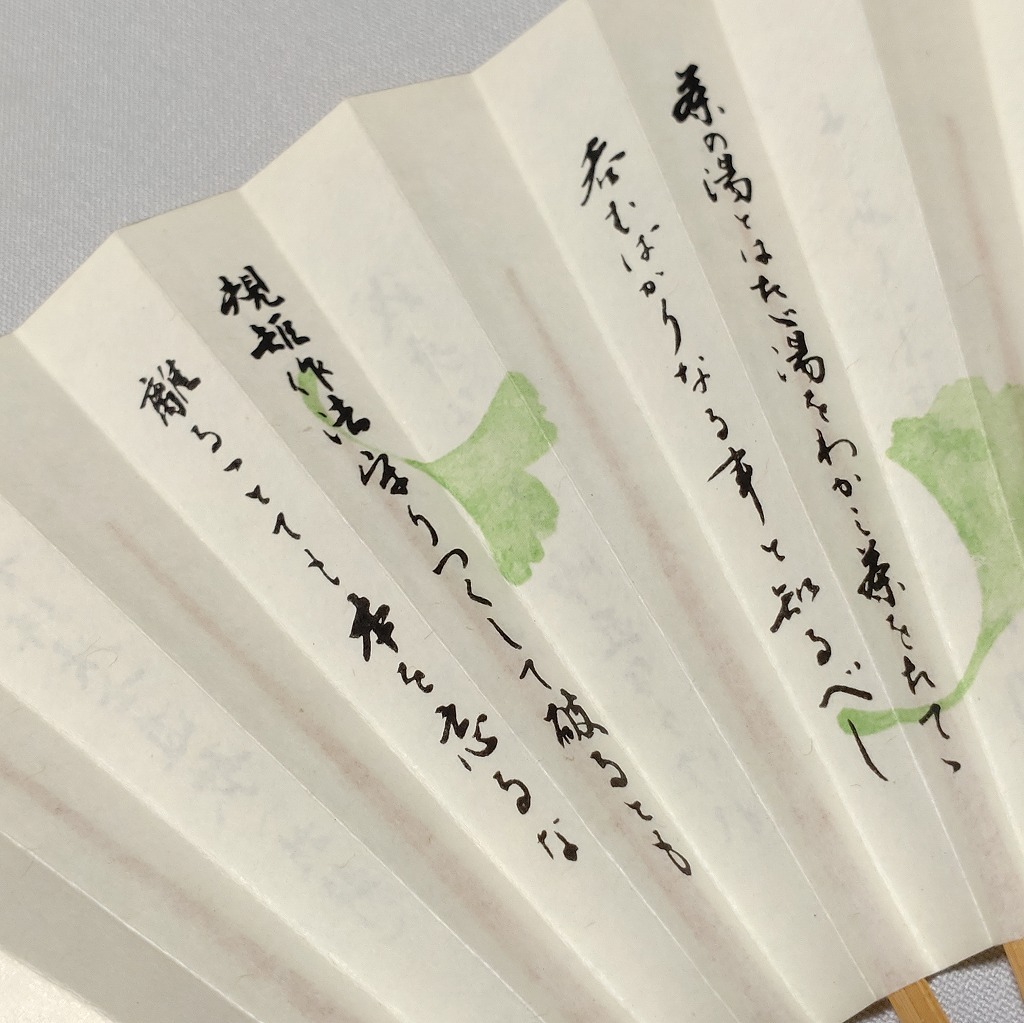 茶の湯とはたゞ湯をわかし茶をたてゝ
呑むばかりなる事と知るべし
規矩作法守りつくして破るとも
離るゝとても本を忘るな